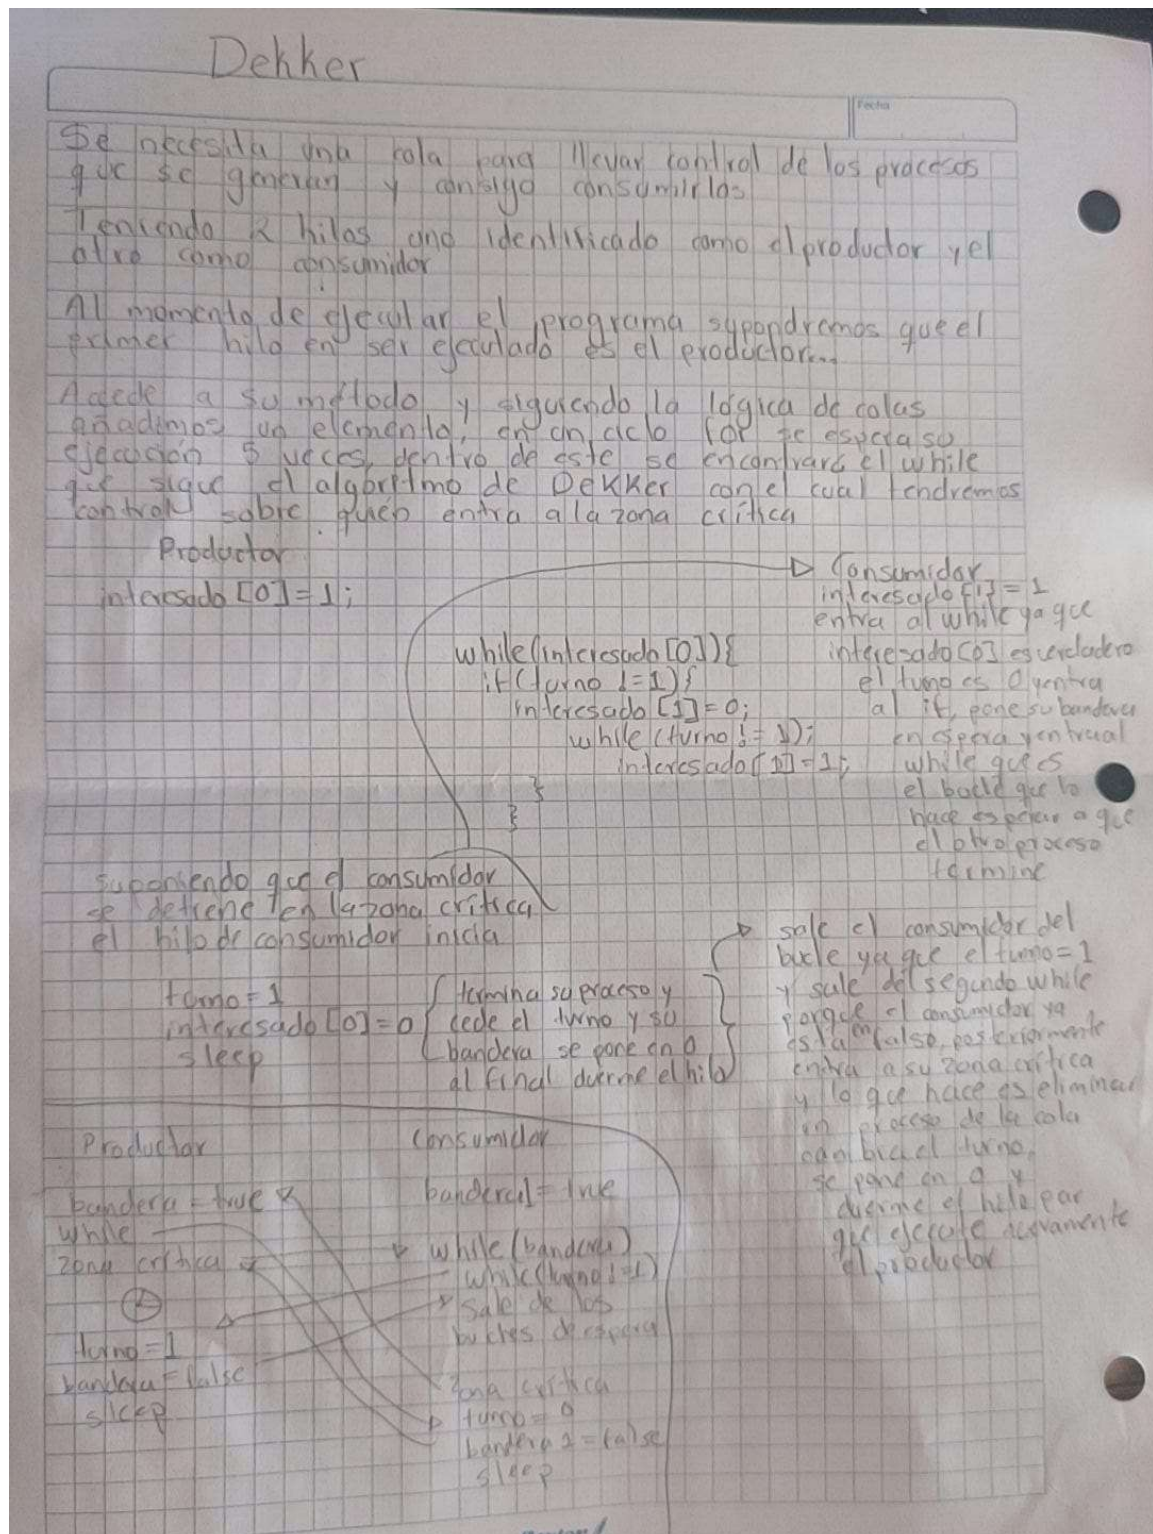 Dekker
Fecha
Se necesita una cola para llevar control de los procesos
que se generan y consigo consumirlos
Teniendo 2 hilos uno identificado como el productor y el
otro como consumidor
Al momento de ejecutar el programa supondremos que el
primer hilo en ser ejecutado es el productor...
Accede a su método y siguiendo la lógica de colas
añadimos un elemento, en un ciclo for se espera su
ejecución 5 veces, dentro de este se encontrará el while
que sigue el algoritmo de Dekker con el cual tendremos
control sobre quien entra a la zona crítica
Productor
interesado [0]=1;
Consumidor
interesado [1] = 1
entra al while ya que
interesado [0] es verdadero
el turno es 0 y entra
al if, pone su bandera
en espera y entra al
while que es
el bucle que lo
hace esperar a que
el otro proceso
termine
while(interesado [0]){
if(turno != 1){
interesado [1]=0;
while (turno != 1);
interesado [1]=1;
}
}
suponiendo que el consumidor
se detiene en la zona crítica
el hilo de consumidor inicia
turno = 1
interesado [0]=0
sleep
termina su proceso y
cede el turno y su
bandera se pone en 0
al final duerme el hilo
sale el consumidor del
bucle ya que el turno=1
y sale del segundo while
porque el consumidor ya
está en falso, posteriormente
entra a su zona crítica
y lo que hace es eliminar
un proceso de la cola
cambia el turno,
se pone en 0 y
duerme el hilo par
que ejecute nuevamente
el productor
Productor
bandera = true
while
zona crítica
turno = 1
bandera = false
sleep
Consumidor
bandera1 = true
while (bandera)
while(turno != 1)
sale de los
bucles de espera
zona crítica
turno = 0
bandera 2 = false
sleep